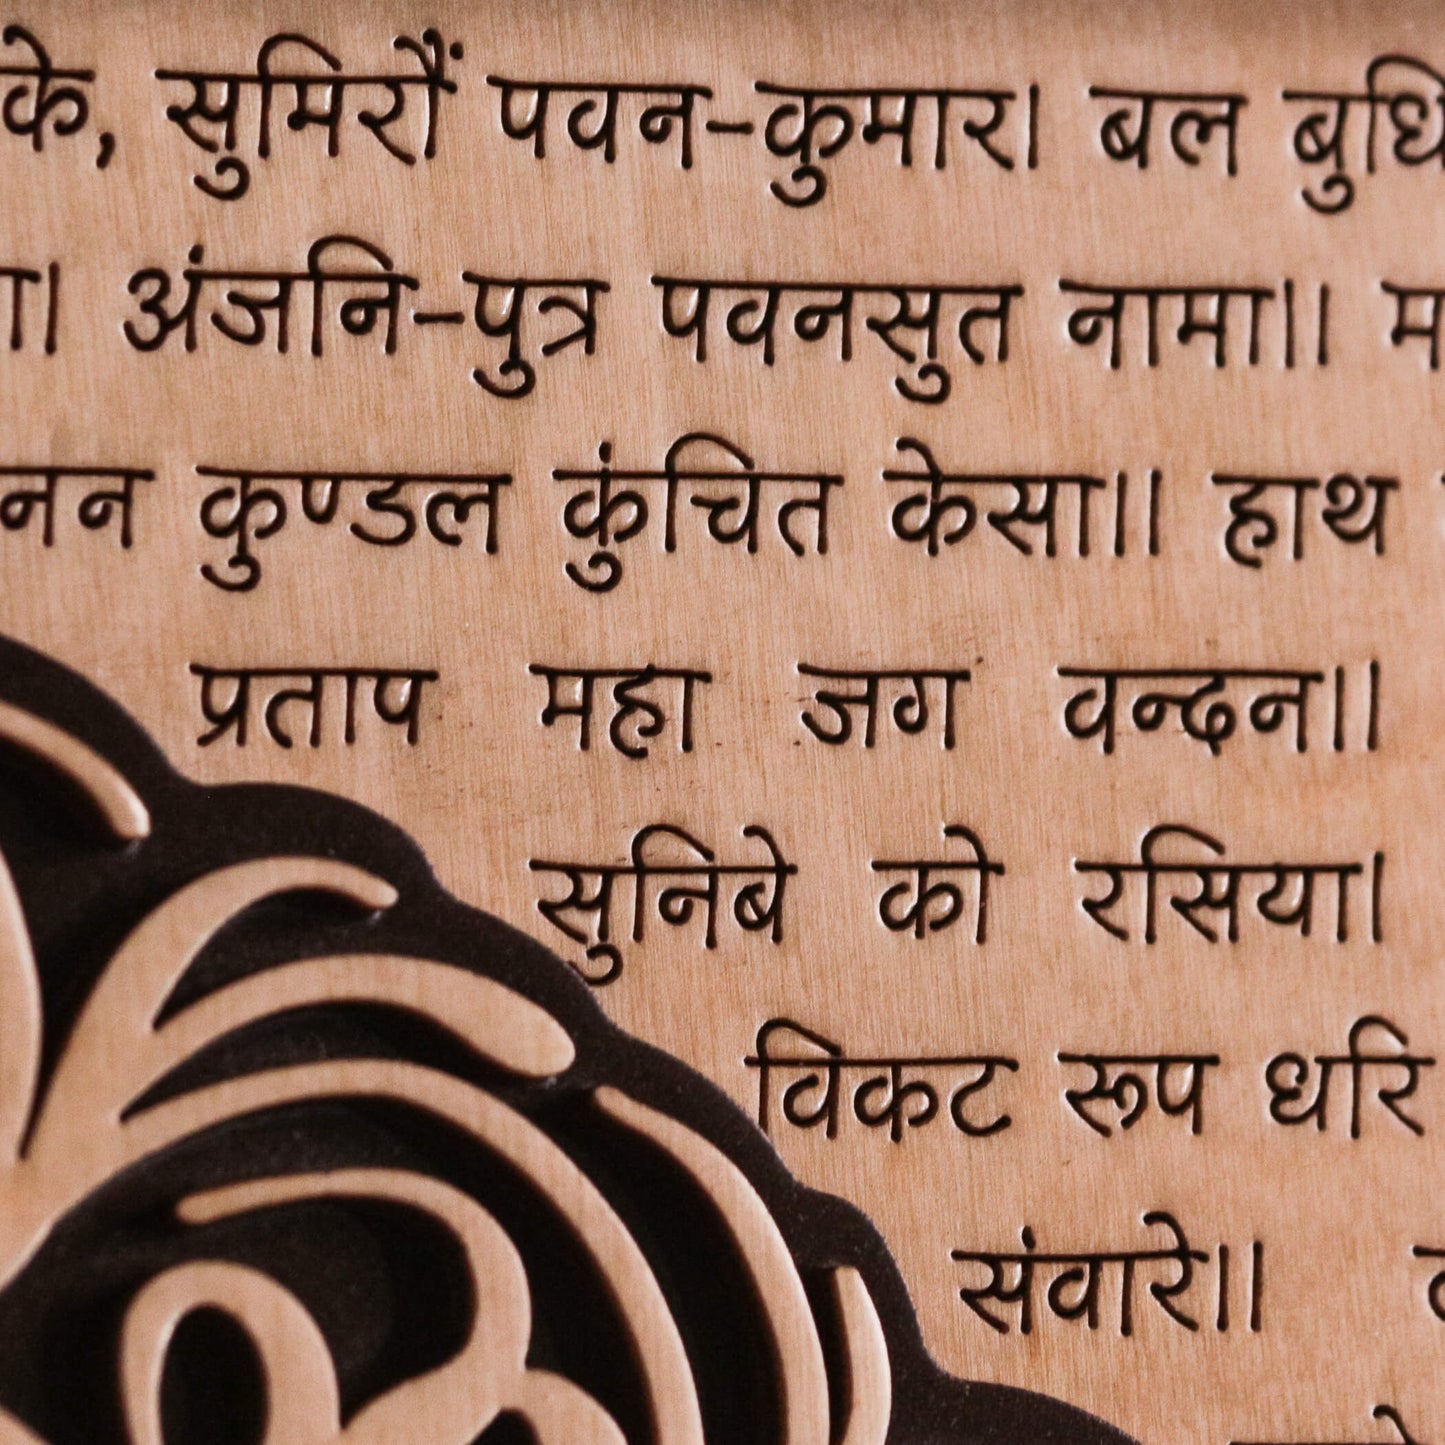 के, सुमिरौं पवन-कुमार। बल बुधि
ा। अंजनि-पुत्र पवनसुत नामा।। म
नन कुण्डल कुंचित केसा।। हाथ
प्रताप महा जग वन्दन।।
सुनिबे को रसिया।
विकट रूप धरि
संवारे।।